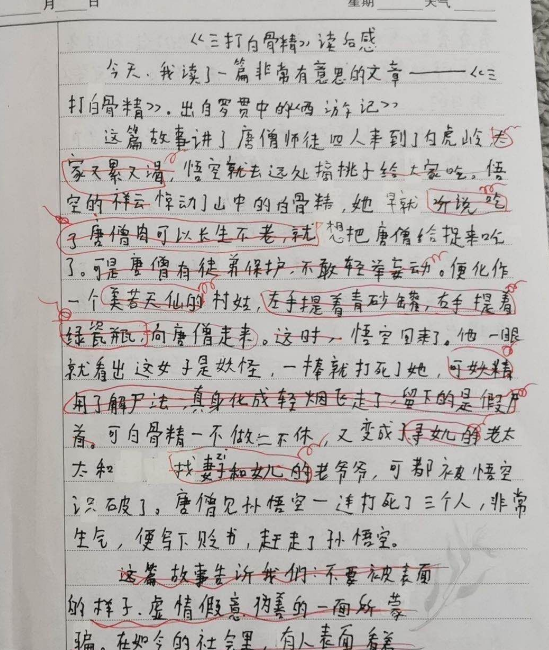 月 日 星期 天气
《三打白骨精》读后感
今天,我读了一篇非常有意思的文章——《三
打白骨精》。出自罗贯中的《西游记》
这篇故事讲了唐僧师徒四人来到了白虎岭,大
家又累又渴,悟空就去远处摘桃子给大家吃。悟
空的祥云惊动了山中的白骨精,她早就听说吃
了唐僧肉可以长生不老,就想把唐僧给捉来吃
了。可是唐僧有徒弟保护,不敢轻举妄动。便化作
一个美若天仙的村姑,左手提着青砂罐,右手提着
绿瓷瓶,向唐僧走来。这时,悟空回来了。他一眼
就看出这女子是妖怪,一棒就打死了她,可妖精
用了解尸法,真身化成轻烟飞走了,留下的是假尸
首。可白骨精一不做二不休,又变成了寻女儿的老太
太和 找妻子和女儿的老爷爷,可都被悟空
识破了。唐僧见孙悟空一连打死了三个人,非常
生气,便写下贬书,赶走了孙悟空。
这篇故事告诉我们:不要被表面
的样子,虚情假意伪善的一面所蒙
骗。在如今的社会里,有人表面看着